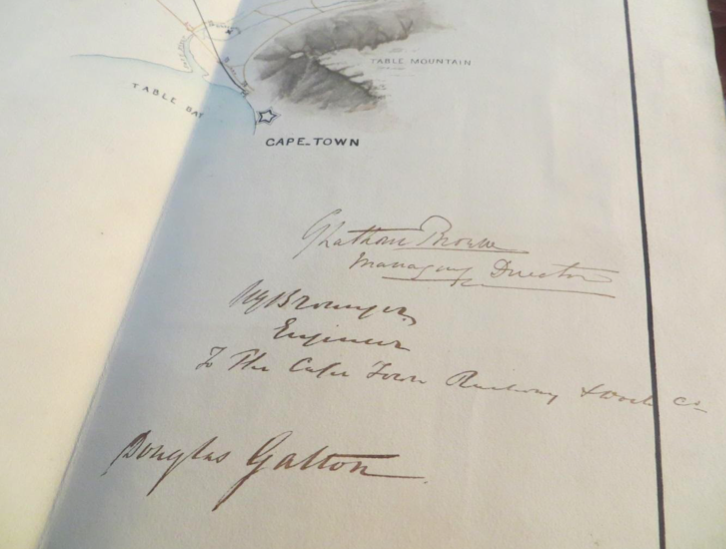 TABLE MOUNTAIN
TABLE BAY
CAPE-TOWN
Managing Director
Engineer
To The Cape Town Railway & Dock Co
Douglas Galton